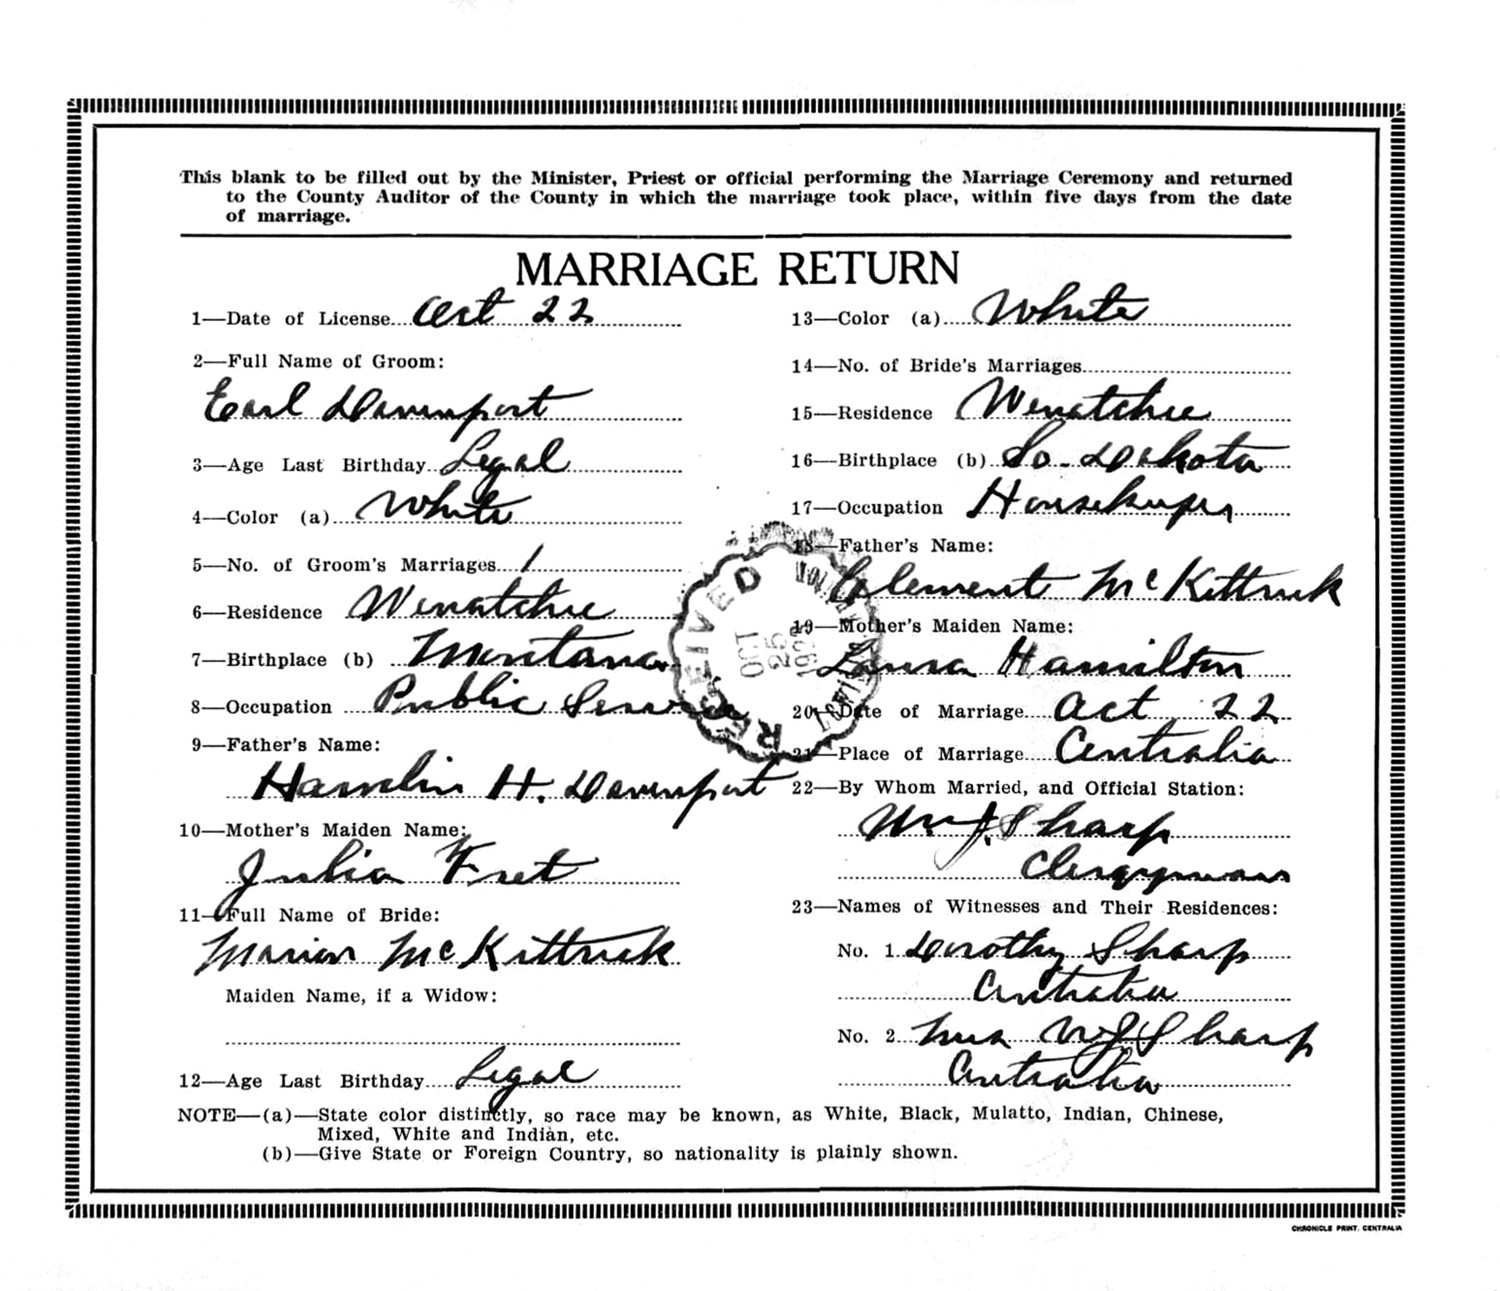 This blank to be filled out by the Minister, Priest or official performing the Marriage Ceremony and returned
to the County Auditor of the County in which the marriage took place, within five days from the date
of marriage.
MARRIAGE RETURN
1—Date of License Oct 22
2—Full Name of Groom:
Earl Davenport
3—Age Last Birthday Legal
4—Color (a) White
5—No. of Groom's Marriages 1
6—Residence Wenatchee
7—Birthplace (b) Montana
8—Occupation Public Service
9—Father's Name:
Hamlin H. Davenport
10—Mother's Maiden Name:
Julia
11—Full Name of Bride:
Marion McKittrick
Maiden Name, if a Widow:
12—Age Last Birthday Legal
13—Color (a) White
14—No. of Bride's Marriages
15—Residence Wenatchee
16—Birthplace (b) So. Dakota
17—Occupation Housekeeper
18—Father's Name:
Clement McKittrick
19—Mother's Maiden Name:
Laura Hamilton
20—Date of Marriage Oct 22
21—Place of Marriage Centralia
22—By Whom Married, and Official Station:
Wm J. Sharp
Clergyman
23—Names of Witnesses and Their Residences:
No. 1. Dorothy Sharp
Centralia
No. 2. Mrs W J Sharp
Centralia
RECEIVED
OCT
25
NOTE—(a)—State color distinctly, so race may be known, as White, Black, Mulatto, Indian, Chinese,
Mixed, White and Indian, etc.
(b)—Give State or Foreign Country, so nationality is plainly shown.
CHRONICLE PRINT. CENTRALIA